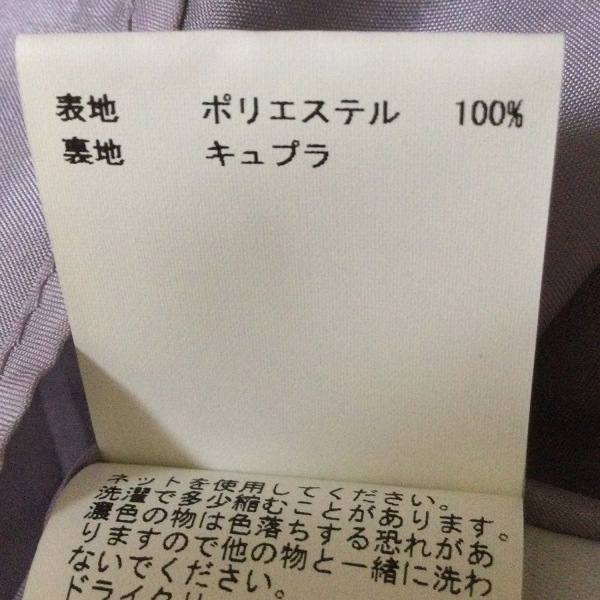 表地 ポリエステル 100%
裏地 キュプラ
ネットを使用してください。
洗濯で多少縮むことがあります。
濃色の物は色落ちする恐れがあ
りますので他の物と一緒に洗わ
ないでください。
ドライクリ